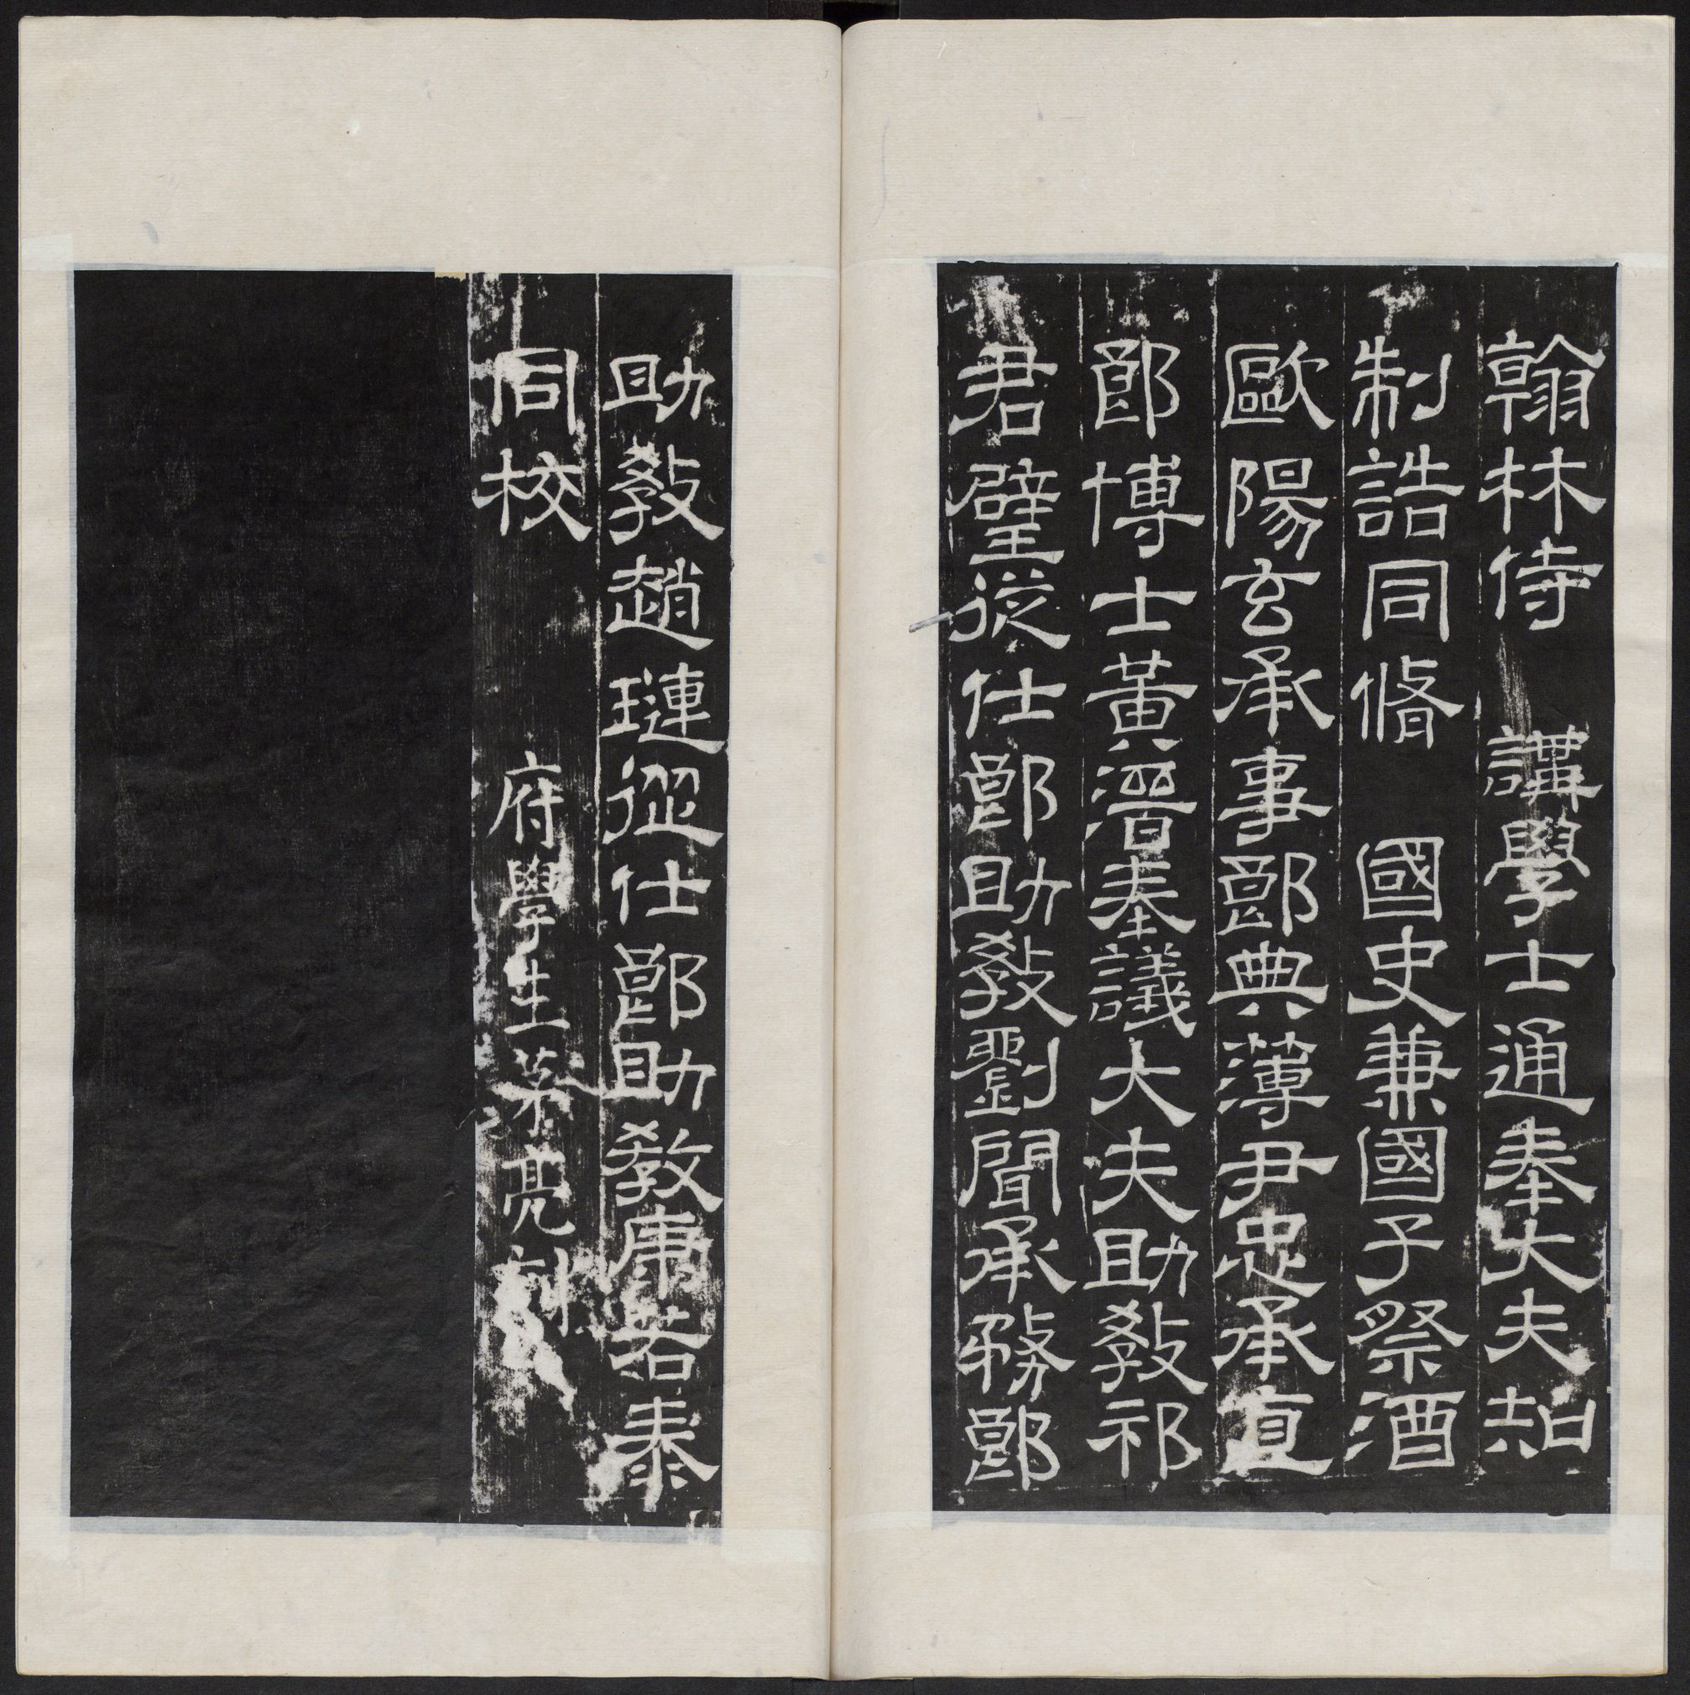 翰林侍 講學士通奉大夫知
制誥同脩 國史兼國子祭酒
歐陽玄承事郎典薄尹忠承直
郎博士黃溍奉議大夫助教祁
君璧從仕郎助教劉聞承務郎
助教趙璉從仕郎助教康若泰
同校 府學生茅亮刻